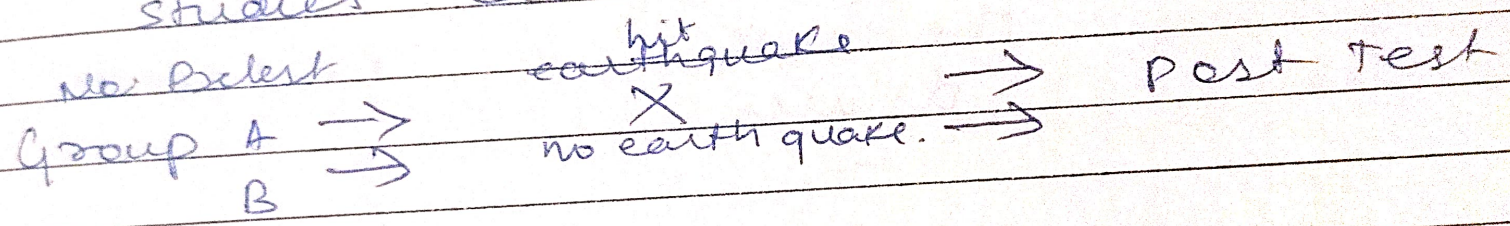 Studies
No Pretest hit earthquake → Post Test
Group A → X
B → no earthquake. →